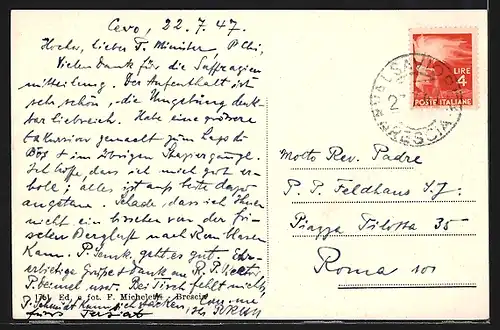 Cevo, 22.7.47.
Hochw. lieber P. Minister, P Chi,
Vielen Dank für die Suffragien
mitteilung. Der Aufenthalt ist
sehr schön, die Umgebung denk
bar lieblich. Habe eine grössere
Exkursion gemacht zum Lago di
im übrigen Spaziergänge.
Ich hoffe, dass ich mich gut er-
hole; alles ist aufs beste dazu
angetan. Schade, dass ich Ihnen
nicht ein bisschen von der fri-
schen Bergluft nach Rom blasen
kann. P. geht es gut. Ehr-
erbietige Grüsse & Dank an R. P.
P. usw. Bei Tisch fehlt nichts,
P. Schmidt kann sich
fürs Terziat
1751 Ed. e fot. F. Micheletti - Brescia
VALSAVIORE
BRESCIA
LIRE
4
POSTE ITALIANE
Molto Rev. Padre
P. P. Feldhaus S.J.
Piazza Pilotta 35
Roma 101